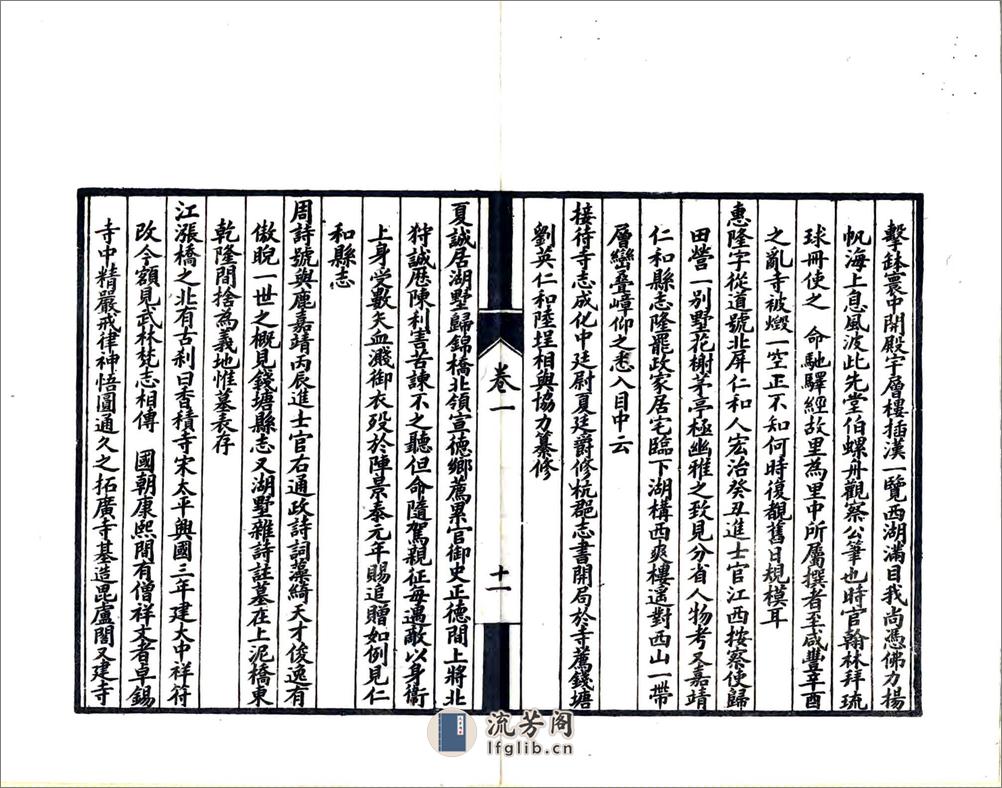 擊鉢寰中開殿宇層樓插漢一覽西湖滿目我尚憑佛力揚
帆海上息風波此先堂伯螺舟觀察公筆也時官翰林拜琉
球冊使之 命馳驛經故里為里中所屬撰者至咸豐辛酉
之亂寺被燬一空正不知何時復覩舊日規模耳
惠隆字從道號北屏仁和人宏治癸丑進士官江西按察使歸
田營一別墅花榭茅亭極幽雅之致見分省人物考又嘉靖
仁和縣志隆罷政家居宅臨下湖構西爽樓遙對西山一帶
層巒叠嶂仰之悉入目中云
接待寺志成化中廷尉夏廷爵修杭郡志書開局於寺薦錢塘
劉英仁和陸埕相與協力纂修
卷一
十一
夏誠居湖墅歸錦橋北領宣德鄉薦累官御史正德間上將北
狩誠歷陳利害苦諫不之聽但命隨駕親征每遇敵以身衞
上身受數矢血濺御衣歿於陣景泰元年賜追贈如例見仁
和縣志
周詩號與鹿嘉靖丙辰進士官右通政詩詞藻綺天才俊逸有
傲睨一世之概見錢塘縣志又湖墅雜詩註墓在上泥橋東
乾隆間捨為義地惟墓表存
江漲橋之北有古刹曰香積寺宋太平興國三年建大中祥符
改今額見武林梵志相傳 國朝康熙間有僧祥文者卓錫
寺中精嚴戒律神悟圓通久之拓廣寺基造毘盧閣又建寺
流芳阁
lfglib.cn